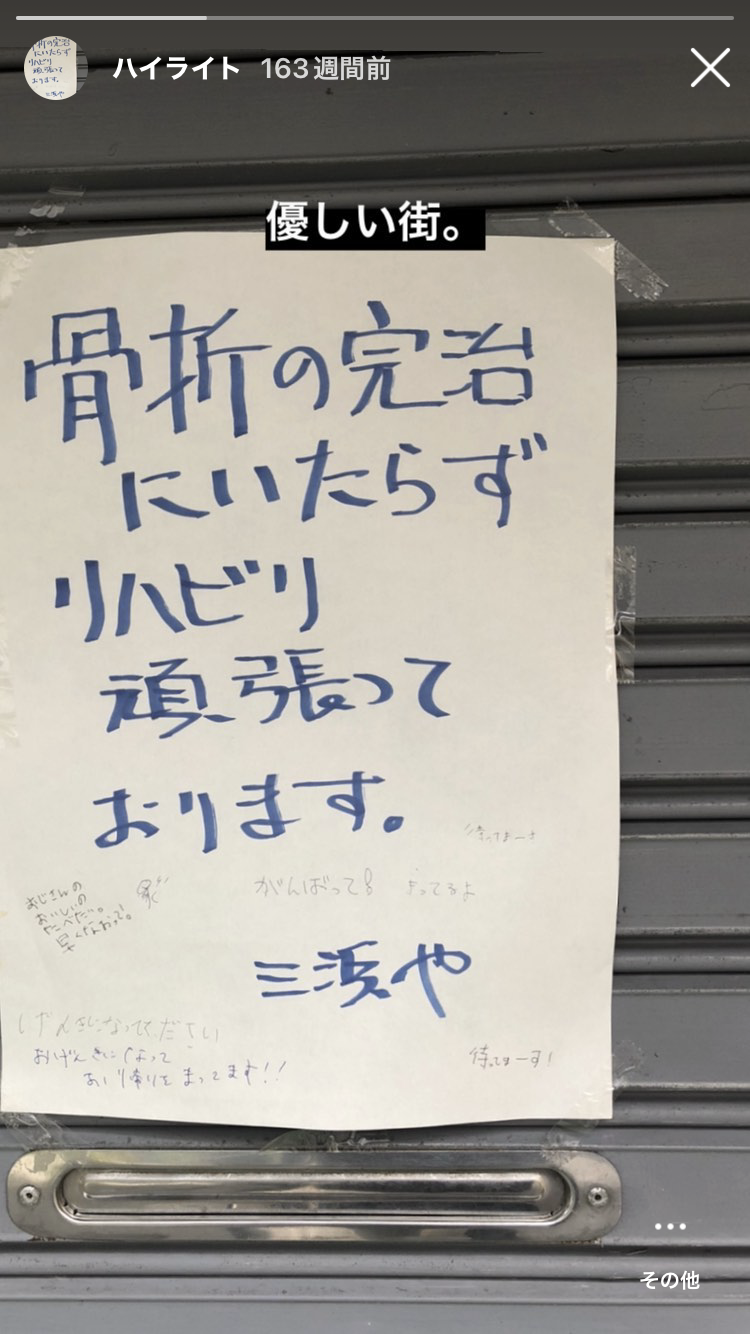 ハイライト 163週間前
優しい街。
骨折の完治
にいたらず
リハビリ
頑張って
おります。
待ってまーす
がんばって まってるよ
おじさんの
おいしいの
たべたい。
早くなおって。
三浜や
げんきになってください
おげんきになって
まってます!!
待ってまーす!
その他